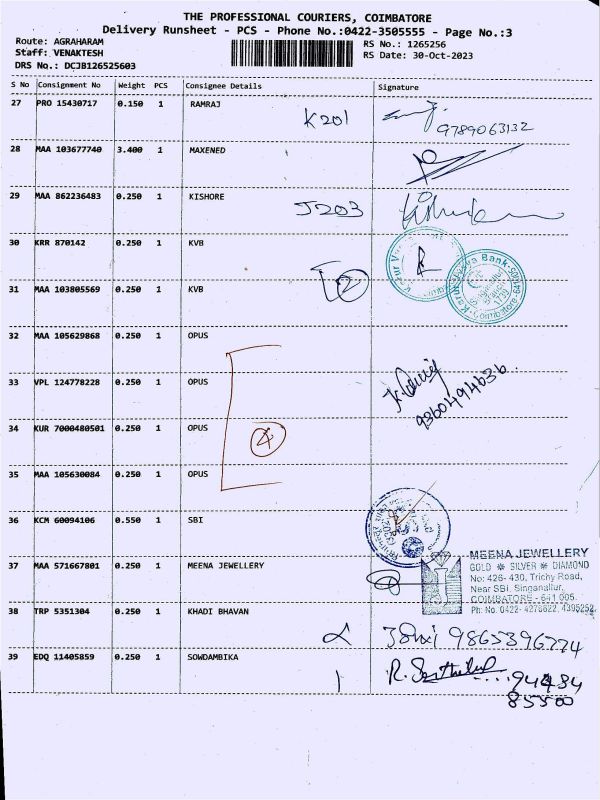 THE PROFESSIONAL COURIERS, COIMBATORE
Delivery Runsheet - PCS - Phone No.:0422-3505555 - Page No.:3
Route: AGRAHARAM
Staff: VENAKTESH
DRS No.: DCJB126525603
RS No.: 1265256
RS Date: 30-Oct-2023
S No Consignment No Weight PCS Consignee Details Signature
27 PRO 15430717 0.150 1 RAMRAJ K201
9789063132
28 MAA 103677740 3.400 1 MAXENED
29 MAA 862236483 0.250 1 KISHORE J203
30 KRR 870142 0.250 1 KVB
31 MAA 103805569 0.250 1 KVB 2
32 MAA 105629868 0.250 1 OPUS
33 VPL 124778228 0.250 1 OPUS
9360494636
34 KUR 7000480501 0.250 1 OPUS 4
35 MAA 105630084 0.250 1 OPUS
36 KCM 60094106 0.550 1 SBI
37 MAA 571667801 0.250 1 MEENA JEWELLERY
MEENA JEWELLERY
GOLD ❋ SILVER ❋ DIAMOND
No: 426-430, Trichy Road,
Near SBI, Singanallur,
COIMBATORE - 641 005.
Ph: No. 0422- 4276622, 4395252
38 TRP 5351304 0.250 1 KHADI BHAVAN
9865396774
39 EDQ 11405859 0.250 1 SOWDAMBIKA 1
94484
85500